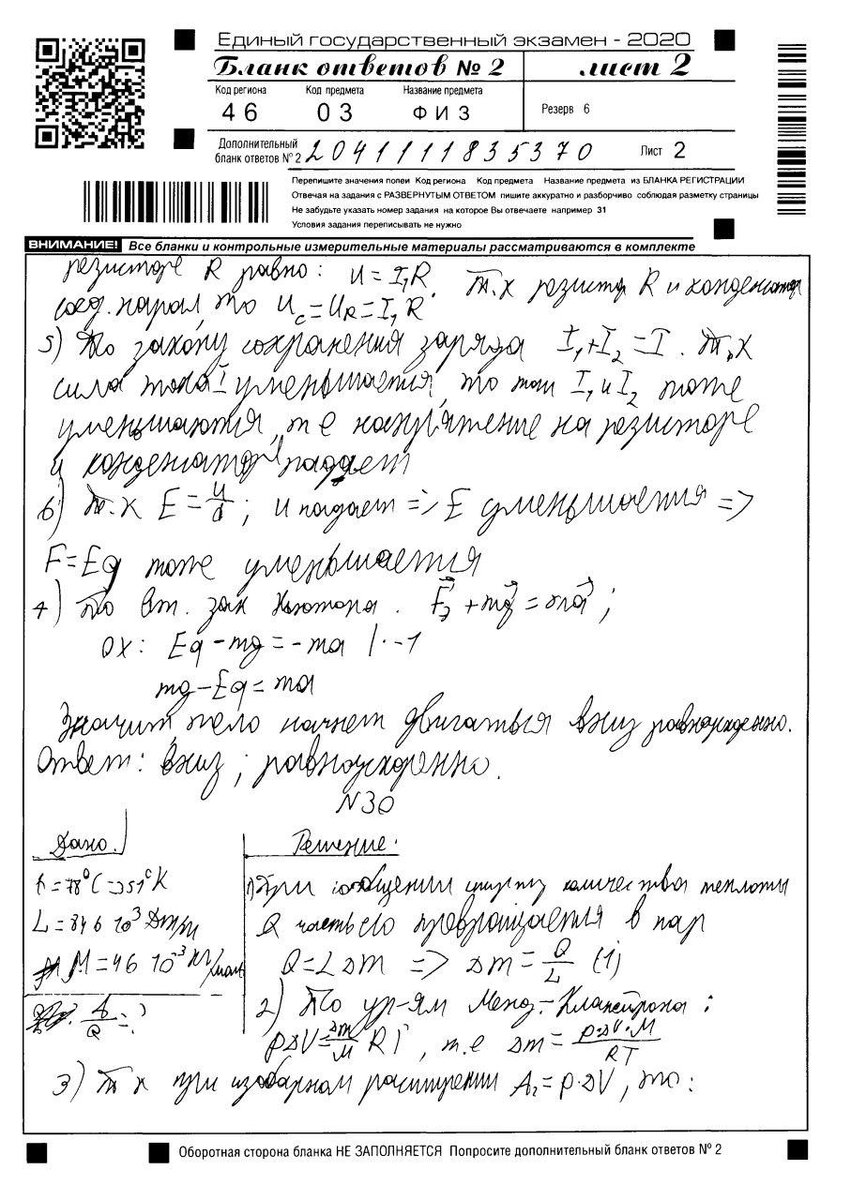 Единый государственный экзамен - 2020
Бланк ответов № 2 лист 2
Код региона Код предмета Название предмета
46 03 ФИЗ Резерв 6
Дополнительный
бланк ответов №2 2041111835370 Лист 2
Перепишите значения полей Код региона Код предмета Название предмета из БЛАНКА РЕГИСТРАЦИИ
Отвечая на задания с РАЗВЕРНУТЫМ ОТВЕТОМ пишите аккуратно и разборчиво соблюдая разметку страницы
Не забудьте указать номер задания на которое Вы отвечаете например 31
Условия задания переписывать не нужно
ВНИМАНИЕ! Все бланки и контрольные измерительные материалы рассматриваются в комплекте
резисторе R равно: U = I₁R. Т.к резистор R и конденсатор
соед. парал, то U_C = U_R = I₁R.
5) По закону сохранения заряда I₁+I₂ = I. Т.к
сила тока I уменьшается, то ток I₁ и I₂ тоже
уменьшаются, т е напряжение на резисторе
и конденсаторе падает
6) Т.к E = U/d; U падает => E уменьшается =>
F = Eq тоже уменьшается
7) По вт. зак Ньютона. F⃗э + mg⃗ = ma⃗;
OX: Eq − mg = −ma |·−1
mg − Eq = ma
Значит, тело начнет двигаться вниз равноускоренно.
Ответ: вниз; равноускоренно.
N30
Дано: Решение:
t = 78°C => 351°K
L = 846 10³ Дж/кг
M = 46 10⁻³ кг/моль
A/Q = ?
1) При сообщении спирту количества теплоты
Q часть его превращается в пар
Q = LΔm => Δm = Q/L (1)
2) По ур-ям Менд.-Клапейрона:
pΔV = Δm/M RT, т.е Δm = p·ΔV·M/RT
3) Т к при изобарном расширении A₂ = p·ΔV, то:
Оборотная сторона бланка НЕ ЗАПОЛНЯЕТСЯ Попросите дополнительный бланк ответов № 2